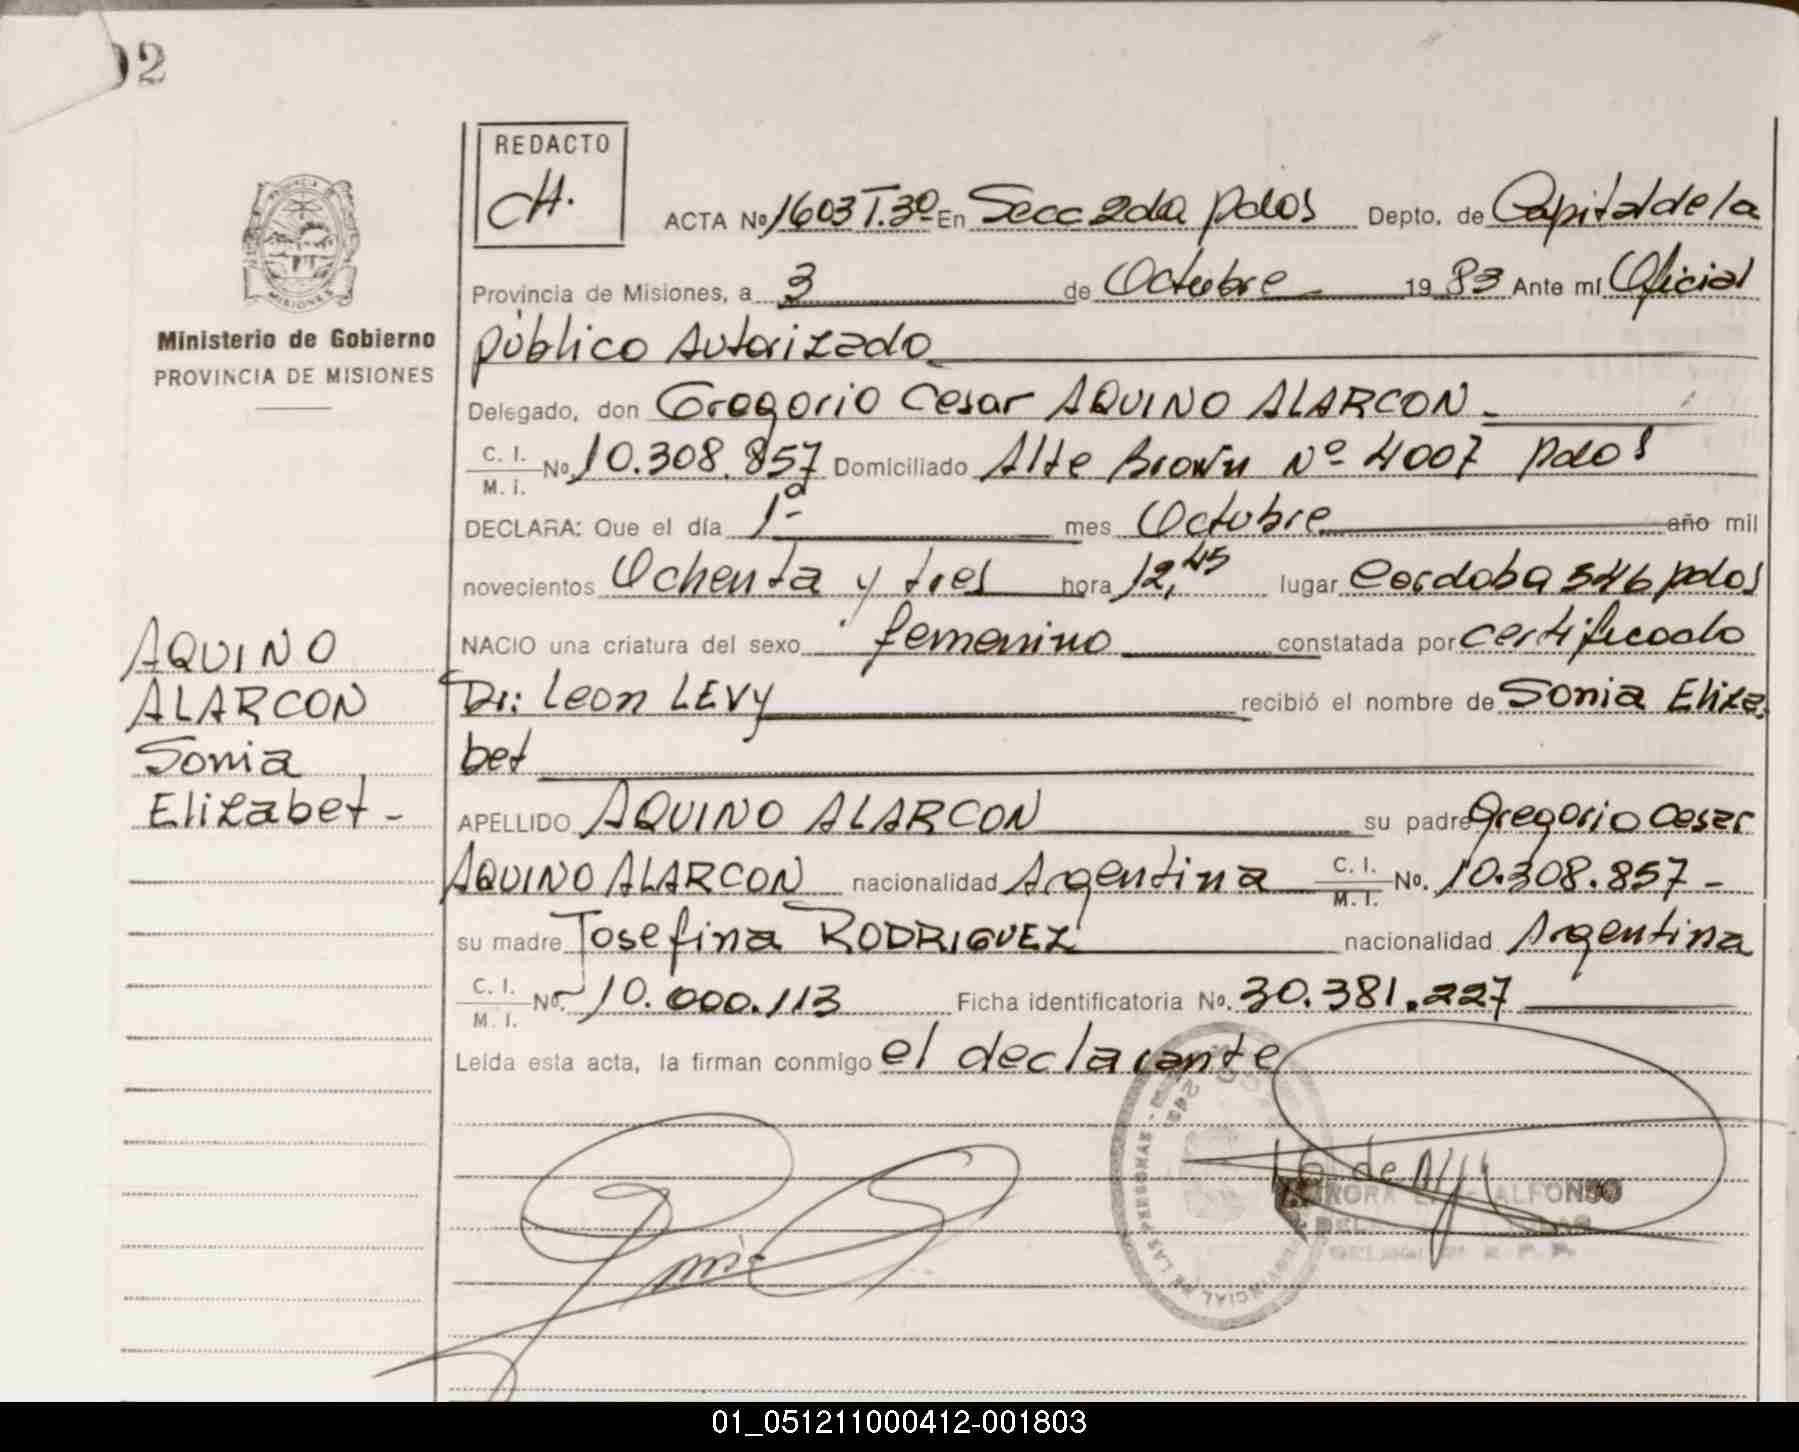 02
REDACTO
CH.
ACTA Nº 1603 T.3º En Secc 2da Pdas Depto. de Capital de la
Provincia de Misiones, a 3 de Octubre 1983 Ante mí Oficial
Público Autorizado
Delegado, don Gregorio Cesar AQUINO ALARCON
C. I.
M. I. Nº 10.308.857 Domiciliado Alte Brown Nº 4007 Pdas
DECLARA: Que el día 1º mes Octubre año mil
novecientos Ochenta y tres hora 12,45 lugar Cordoba 546 Pdas
NACIO una criatura del sexo femenino constatada por certificado
Dr: Leon LEVY recibió el nombre de Sonia Eliza
bet
APELLIDO AQUINO ALARCON su padre Gregorio Cesar
AQUINO ALARCON nacionalidad Argentina C. I.
M. I. No. 10.308.857 -
su madre Josefina RODRIGUEZ nacionalidad Argentina
C. I.
M. I. No. 10.000.113 Ficha identificatoria No. 30.381.227
Leída esta acta, la firman conmigo el declarante
Ministerio de Gobierno
PROVINCIA DE MISIONES
AQUINO
ALARCON
Sonia
Elizabet -
PROVINCIA
MISIONES
PROVINCIAL DE LAS PERSONAS
ALFONSO
01_051211000412-001803